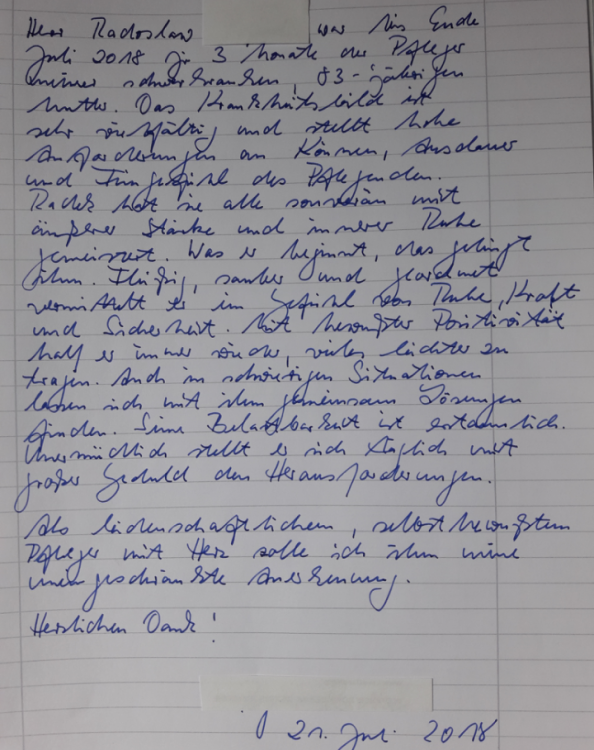 Herr Radoslaw war bis Ende
Juli 2018 für 3 Monate der Pfleger
meiner schwerkranken, 83-jährigen
Mutter. Das Krankheitsbild ist
sehr vielfältig und stellt hohe
Anforderungen an Können, Ausdauer
und Feingefühl des Pflegenden.
Radek hat sie alle souverän mit
äußerer Stärke und innerer Ruhe
gemeistert. Was er beginnt, das gelingt
ihm. Fleißig, sauber und geordnet
vermittelt er ein Gefühl von Ruhe, Kraft
und Sicherheit. Mit bewußter Positivität
half er immer wieder, vieles leichter zu
tragen. Auch in schwierigen Situationen
lassen sich mit ihm gemeinsam Lösungen
finden. Seine Belastbarkeit ist erstaunlich.
Unermüdlich stellt er sich täglich mit
großer Geduld den Herausforderungen.
Als leidenschaftlichem, selbstbewußtem
Pfleger mit Herz zolle ich ihm meine
uneingeschränkte Anerkennung.
Herzlichen Dank!
21. Juli 2018